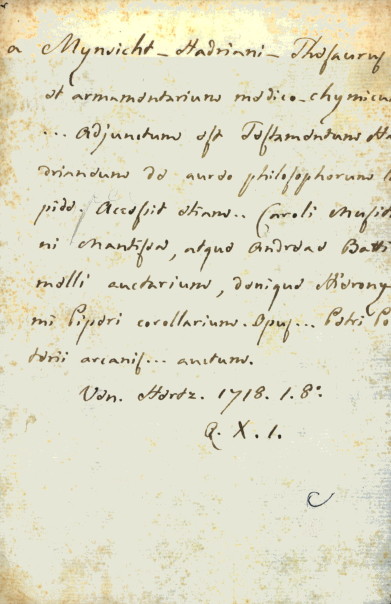 a Mynsicht - Hadriani - Thesaurus
et armamentarium medico-chymicu
... Adjunctum est Testamentum Ha
drianeum de aureo philosophorum la
pide. Accessit etiam.. Caroli Musita
ni Mantissa, atque Andreae Batti
melli auctarium, denique Hierony
mi Piperi corollarium. Opus... Petri Po
terii arcanis... auctum.
Ven. Hertz. 1718. 1. 8°.
Q. X. 1.